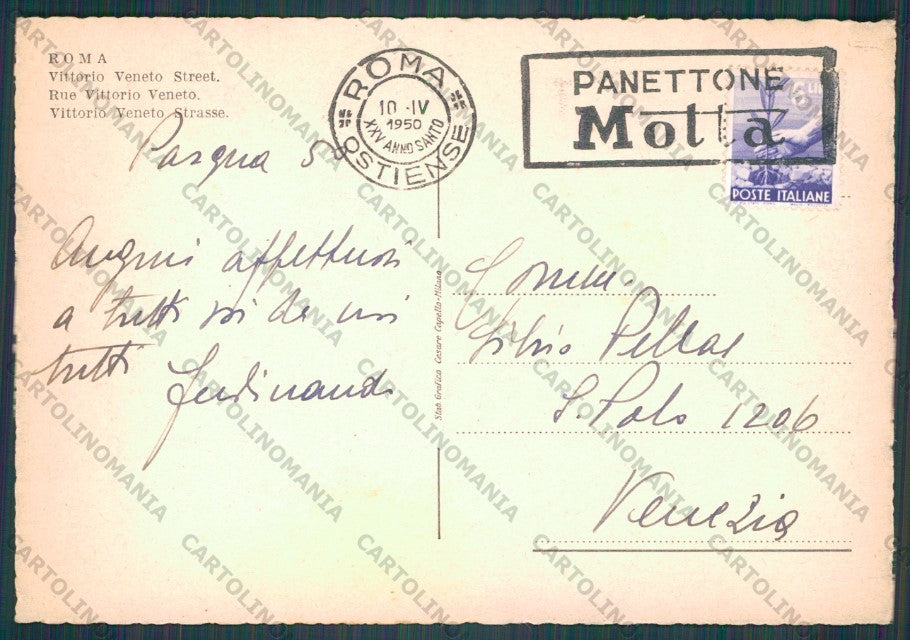 ROMA
Vittorio Veneto Street.
Rue Vittorio Veneto.
Vittorio Veneto Strasse.
ROMA
10 - IV
1950
XXV ANNO SANTO
OSTIENSE
PANETTONE
Motta
POSTE ITALIANE
Pasqua 50
Auguri affettuosi
a tutti voi da noi
tutti
Ferdinando
Stab. Grafico Cesare Capello - Milano
Comm.
Silvio Pellas
S. Polo 1206
Venezia
CARTOLINOMANIA